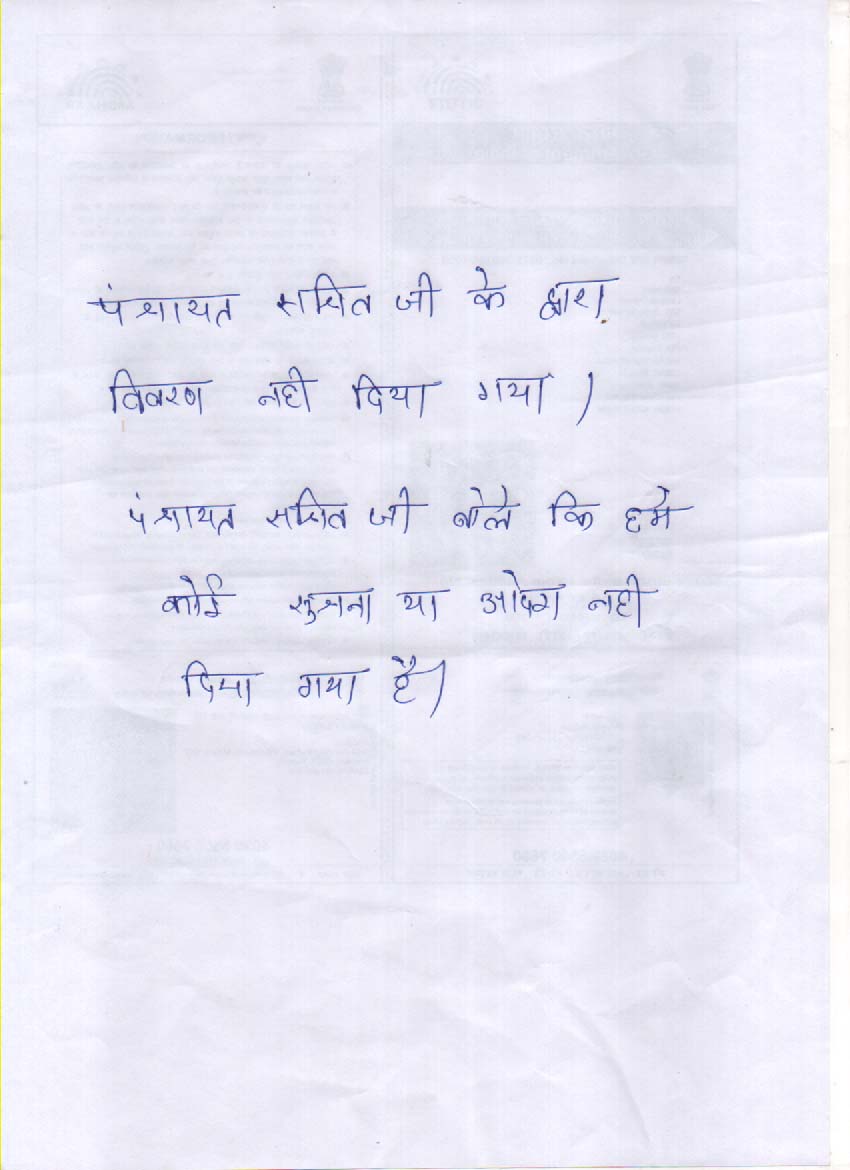 पंचायत सचित जी के द्वारा
विवरण नही दिया गया ।
पंचायत सचित जी बोले कि हमे
कोई सुचना या आदेश नही
दिया गया है।